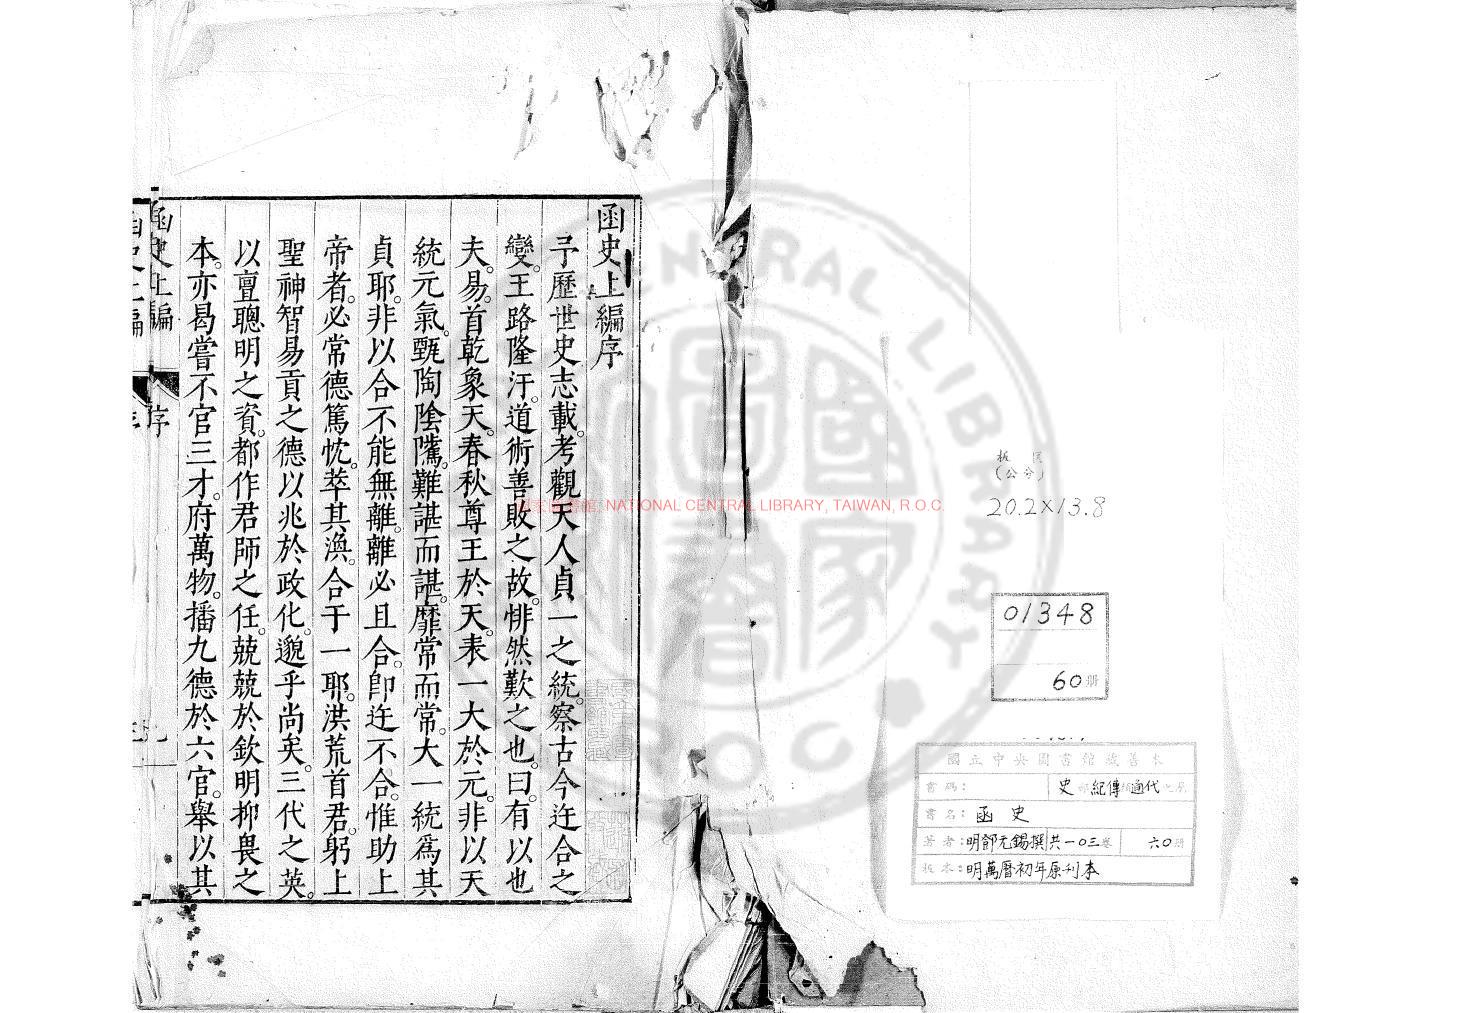 板 匡
(公分)
20.2×13.8
01348
60 册
國立中央圖書館藏善本
書碼: 史部紀傳類通代之屬
書名: 函史
著者: 明鄧元錫撰 共一0三卷 六0册
板本: 明萬曆初年原刊本
國家圖書館, NATIONAL CENTRAL LIBRARY, TAIWAN, R.O.C.
NATIONAL CENTRAL LIBRARY
R.O.C.
函史上編序
予歷世史志載。考觀天人貞一之統。察古今迕合之
變。王路隆汙。道術善敗之故。悱然歎之也。曰。有以也
夫。易。首乾象天。春秋尊王於天。表一大於元。非以天
統元氣。甄陶陰隲。難諶而諶。靡常而常。大一統爲其
貞耶。非以合不能無離。離必且合。卽迕不合。惟助上
帝者。必常德篤忱。萃其渙。合于一耶。洪荒首君。躬上
聖神智易貢之德以兆於政化。邈乎尚矣。三代之英。
以亶聰明之資。都作君師之任。兢兢於欽明抑畏之
本。亦曷嘗不官三才。府萬物。播九德於六官。舉以其
函史上編
序